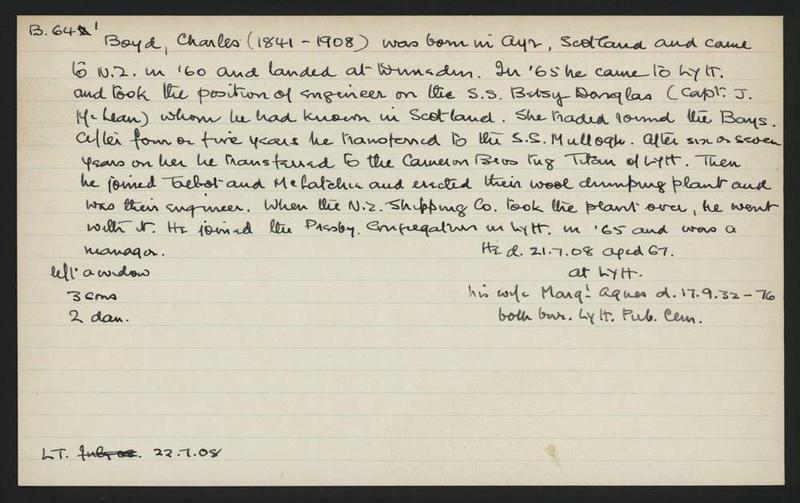 B.641 Boyd, Charles (1841-1908) was born in Ayr, Scotland and came
to N.Z. in '60 and landed at Dunedin. In '65 he came to Lytt.
and took the position of engineer on the S.S. Betsy Douglas (Capt. J.
McLean) whom he had known in Scotland. She traded round the Bays.
After four or five years he transferred to the S.S. Mullogh. After six or seven
years on her he transferred to the Cameron Bros tug Titan of Lytt. Then
he joined Talbot and McClatchie and erected their wool dumping plant and
was their engineer. When the N.Z. Shipping Co. took the plant over, he went
with it. He joined the Presby. Congregation in Lytt. in '65 and was a
manager. He d. 21.7.08 aged 67.
left a widow at Lytt.
3 sons his wife Margt Agnes d. 17.9.32 - 76
2 dau. both bur. Lytt. Pub. Cem.
LT. 22.7.08